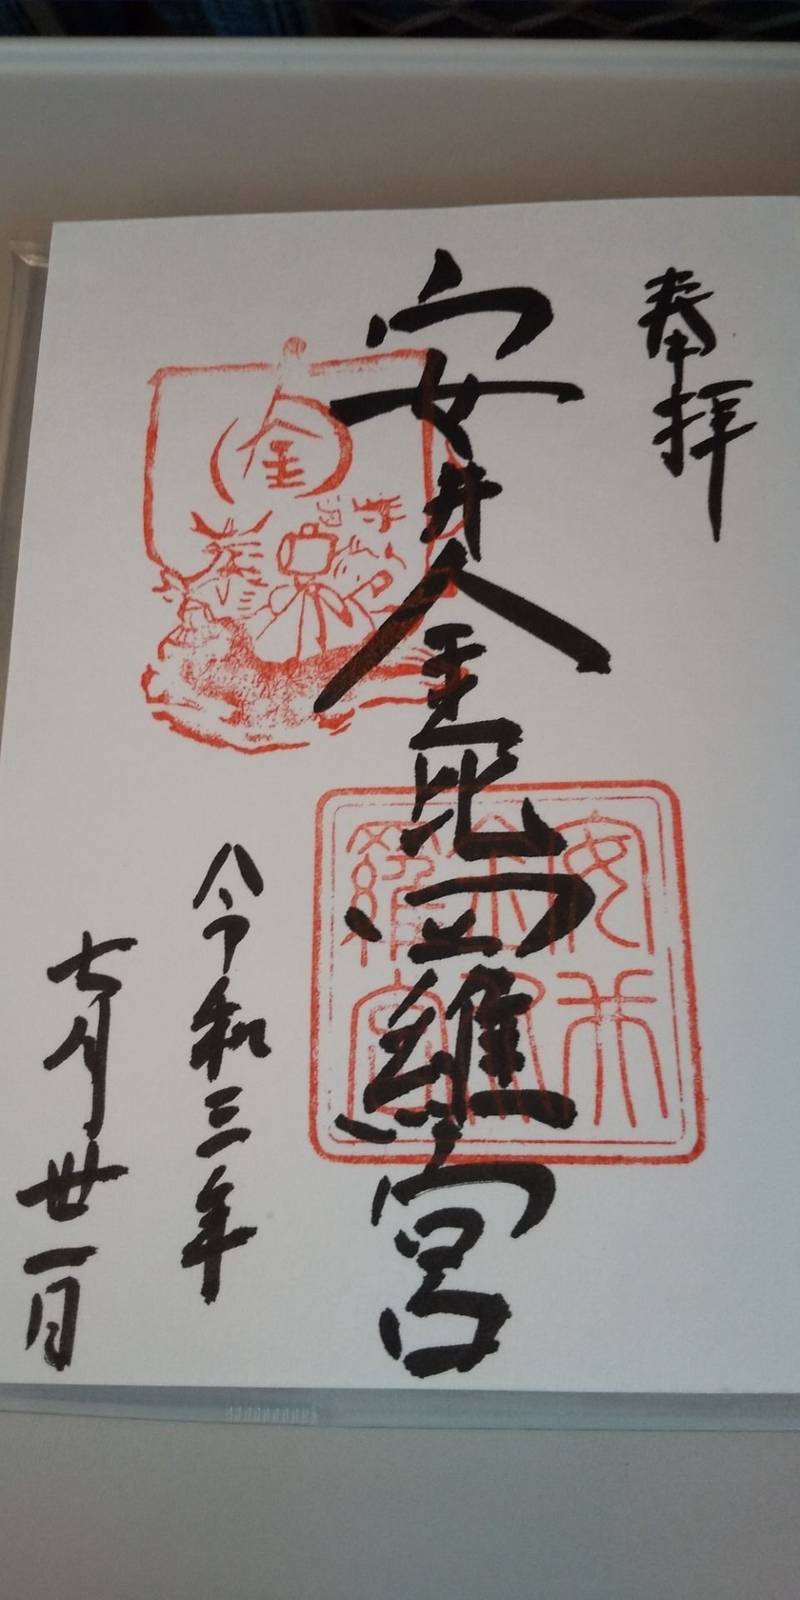 奉拝
安井金比羅宮
令和三年
七月廿一日
金
安井
金比
羅宮